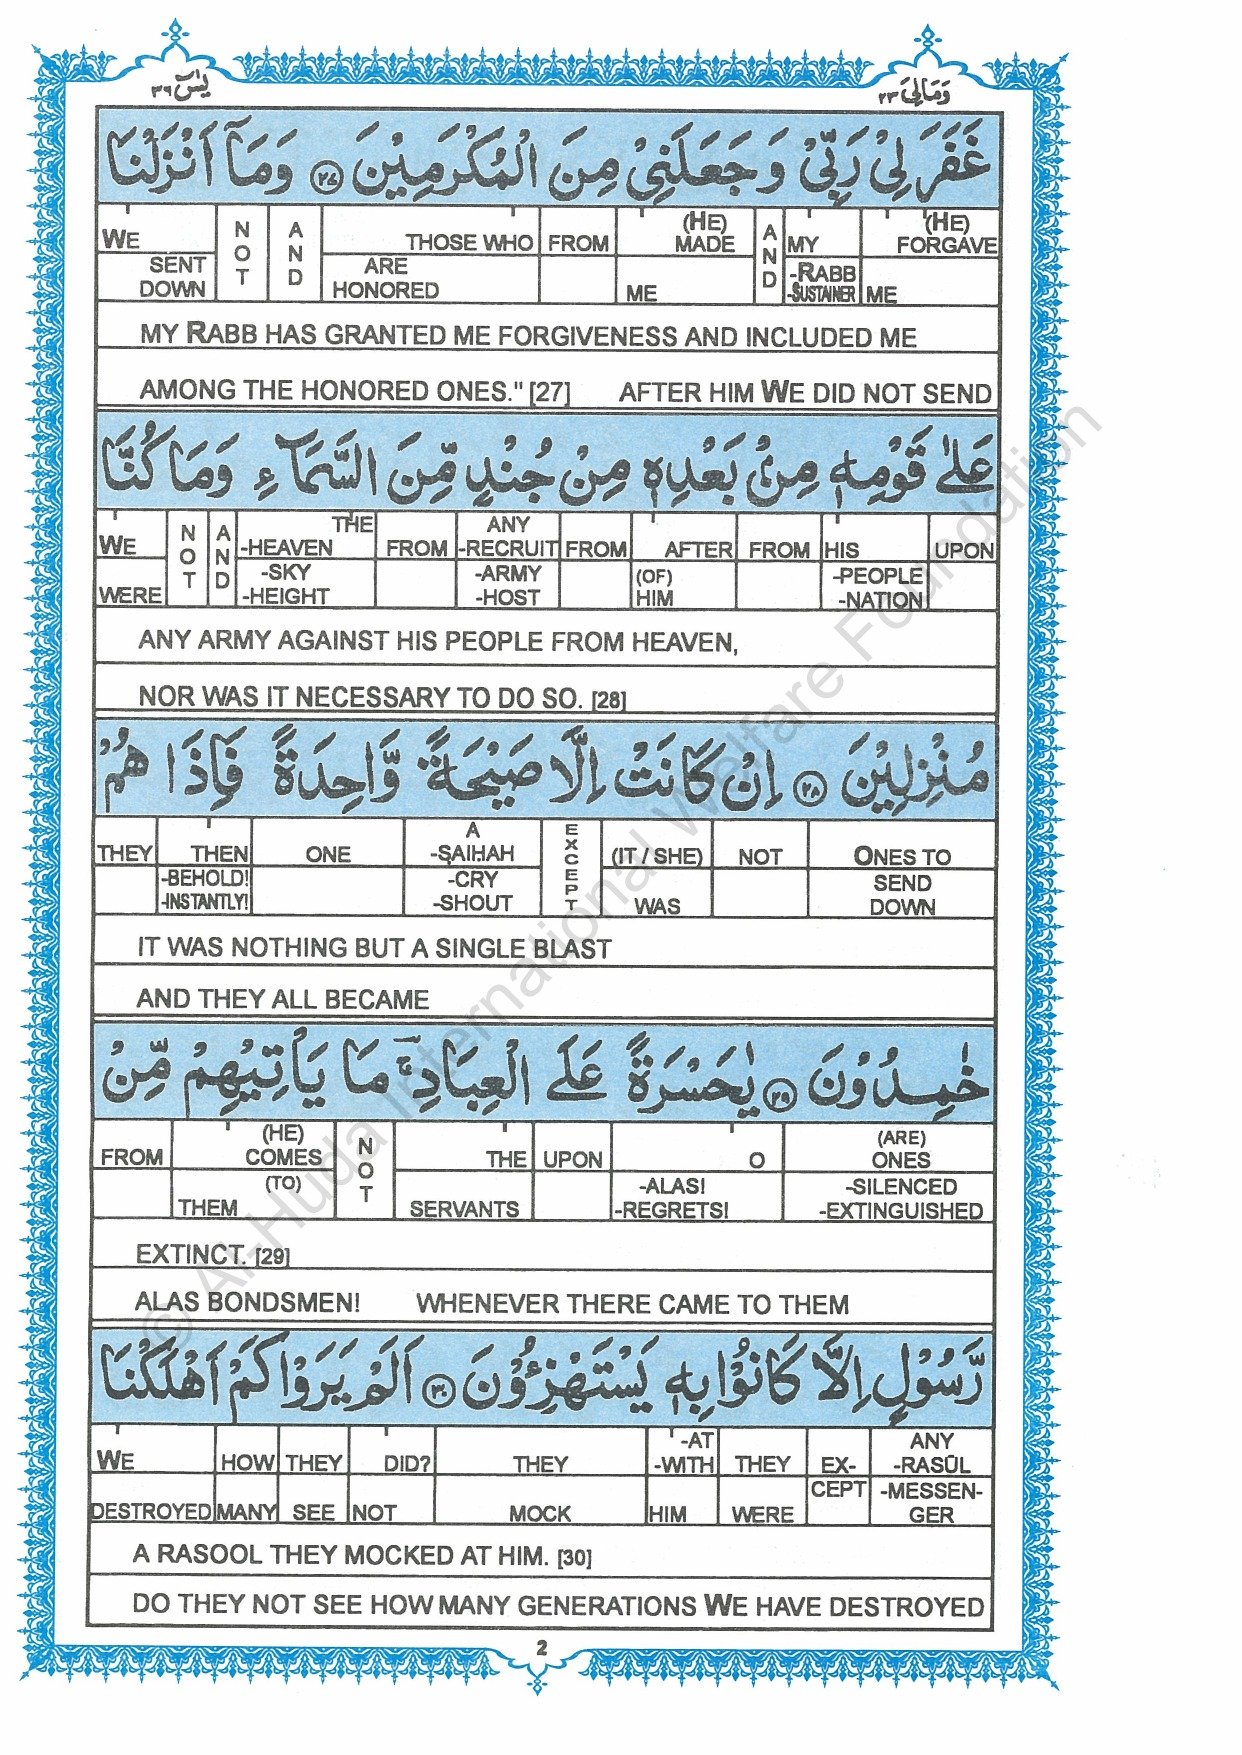 يٰسٓ ٣٦ وَمَالِیَ ٢٣
غَفَرَ لِیْ رَبِّیْ وَ جَعَلَنِیْ مِنَ الْمُكْرَمِیْنَ ﴿٢٧﴾ وَمَاۤ اَنْزَلْنَا
WE NOT AND THOSE WHO FROM (HE) MADE AND MY (HE) FORGAVE
SENT DOWN ARE HONORED ME -RABB -SUSTAINER ME
MY RABB HAS GRANTED ME FORGIVENESS AND INCLUDED ME
AMONG THE HONORED ONES." [27] AFTER HIM WE DID NOT SEND
عَلٰى قَوْمِهٖ مِنْۢ بَعْدِهٖ مِنْ جُنْدٍ مِّنَ السَّمَآءِ وَمَا كُنَّا
WE NOT AND THE -HEAVEN FROM ANY -RECRUIT FROM AFTER FROM HIS UPON
WERE -SKY -HEIGHT -ARMY -HOST (OF) HIM -PEOPLE -NATION
ANY ARMY AGAINST HIS PEOPLE FROM HEAVEN,
NOR WAS IT NECESSARY TO DO SO. [28]
مُنْزِلِیْنَ ﴿٢٨﴾ اِنْ كَانَتْ اِلَّا صَیْحَةً وَّاحِدَةً فَاِذَا هُمْ
THEY THEN ONE A -ṢAIḤAH EXCEPT (IT / SHE) NOT ONES TO
-BEHOLD! -INSTANTLY! -CRY -SHOUT WAS SEND DOWN
IT WAS NOTHING BUT A SINGLE BLAST
AND THEY ALL BECAME
خٰمِدُوْنَ ﴿٢٩﴾ یٰحَسْرَةً عَلَى الْعِبَادِ ۚ مَا یَاْتِیْهِمْ مِّنْ
FROM (HE) COMES NOT THE UPON O (ARE) ONES
(TO) THEM SERVANTS -ALAS! -REGRETS! -SILENCED -EXTINGUISHED
EXTINCT. [29]
ALAS BONDSMEN! WHENEVER THERE CAME TO THEM
رَّسُوْلٍ اِلَّا كَانُوْا بِهٖ یَسْتَهْزِءُوْنَ ﴿٣٠﴾ اَلَمْ یَرَوْا كَمْ اَهْلَكْنَا
WE HOW THEY DID? THEY -AT -WITH THEY EX- ANY -RASŪL
DESTROYED MANY SEE NOT MOCK HIM WERE CEPT -MESSEN- GER
A RASOOL THEY MOCKED AT HIM. [30]
DO THEY NOT SEE HOW MANY GENERATIONS WE HAVE DESTROYED
2
© Al-Huda International Welfare Foundation